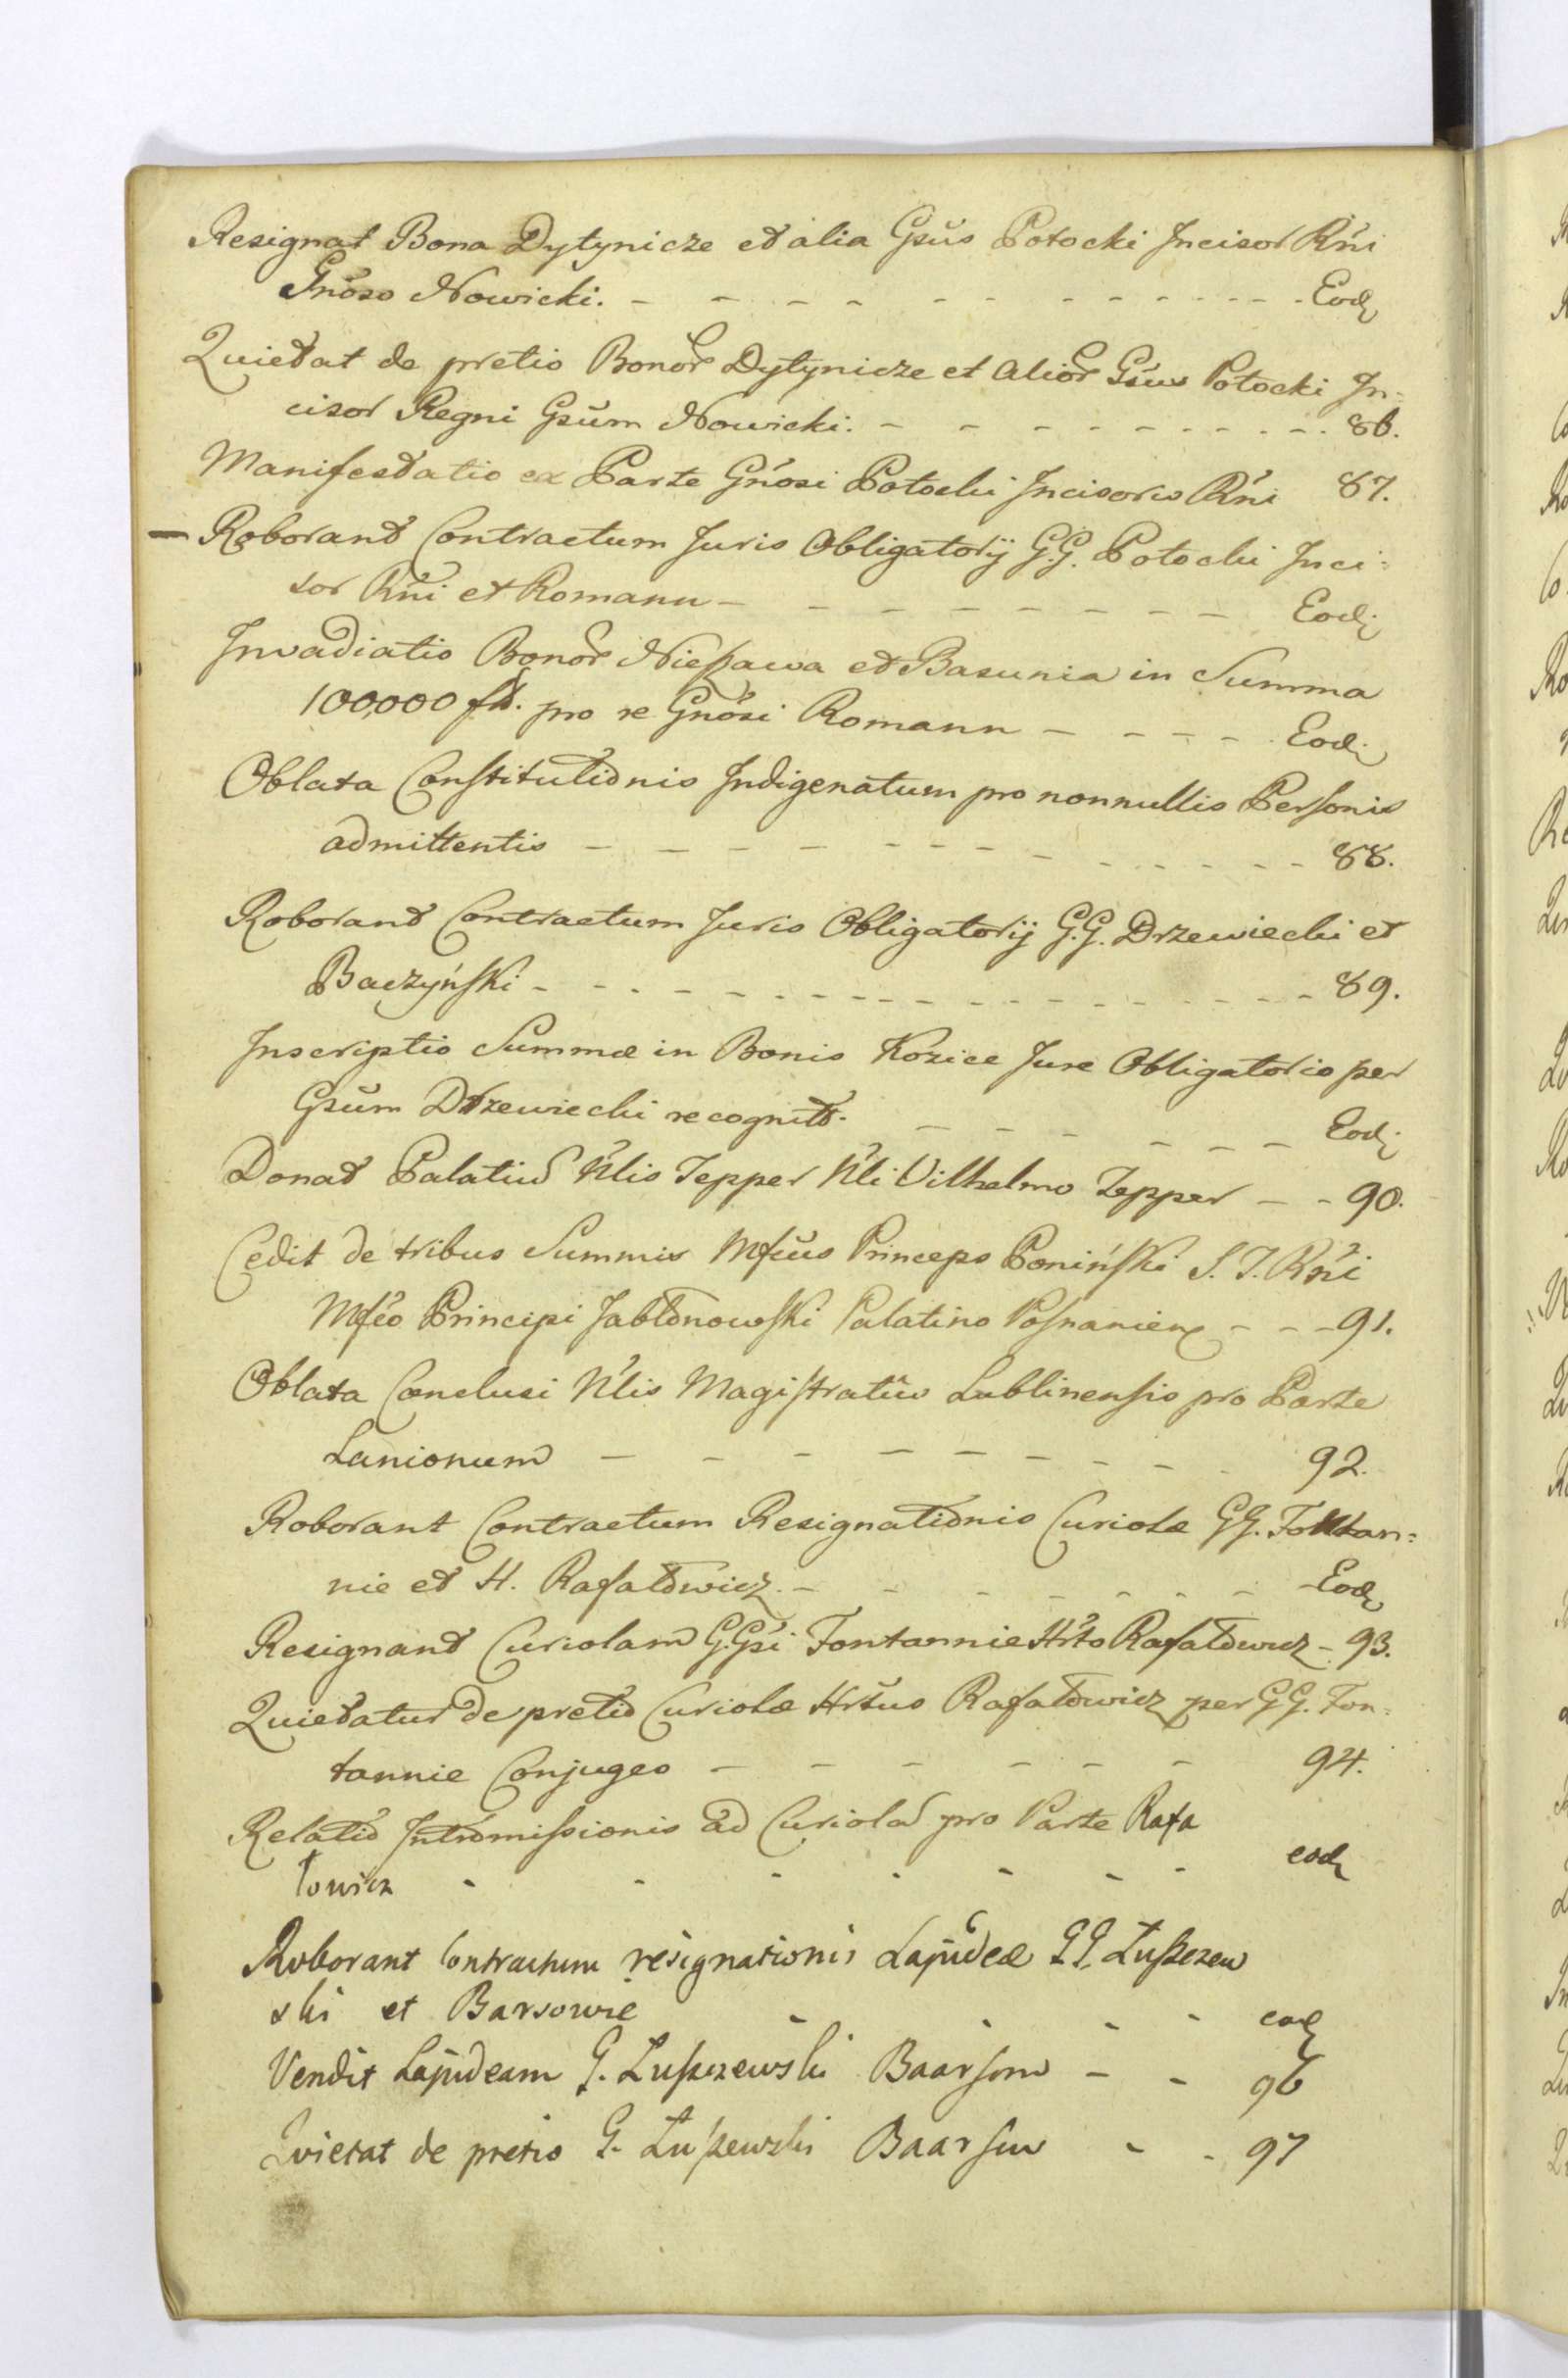 Resignat Bona Dytynicze et alia Gsus Potocki Incisor Rni
Gnoso Nowicki. - - - - - - - - - - - - Eod
Quietat de pretio Bonor Dytynicze et alior Gsus Potocki In=
cisor Regni Gsum Nowicki. - - - - - - - - - 86.
Manifestatio ex Parte Gnosi Potocki Incisoris Rni 87.
- Roborant Contractum Juris Obligatorij G.G. Potocki Inci=
sor Rni et Romann - - - - - - - - Eod.
Invadiatio Bonor Nieszawa et Basunia in Summa
100,000 fl. pro re Gnosi Romann - - - - Eod.
Oblata Constitutionis Indigenatum pro nonnullis Personis
admittentis - - - - - - - - - - - 88.
Roborant Contractum Juris Obligatorij G.G. Drzewiecki et
Baczyński - - - - - - - - - - - - - - 89.
Inscriptio Summæ in Bonis Kozice Jure Obligatorio per
Gsum Drzewiecki recognit. - - - - - - Eod.
Donat Palatium Nlis Tepper Nli Vilhelmo Tepper - - 90.
Cedit de tribus Summis Mfcus Princeps Poniński S. T. Rni
Mfco Principi Jabłonowski Palatino Posnanien - - - 91.
Oblata Conclusi Nlis Magistratûs Lublinensis pro Parte
Lanionum - - - - - - - - 92.
Roborant Contractum Resignationis Curiolæ GG. Fontan=
nie et H. Rafałowicz. - - - - - - Eod
Resignant Curiolam G.Gsi Fontannie Hrto Rafałowicz - 93.
Quietatur de pretio Curiolæ Hrtus Rafałowicz per GG. Fon=
tannie Conjuges - - - - - - 94.
Relatio Intromissionis ad Curiolam pro Parte Rafa
łowicz - - - - - - - eod
Roborant Contractum resignationis Lapideæ GG. Łuszczew
ski et Barsowie - - - - eod
Vendit Lapideam G. Łuszczewski Baarsow - - 96
Quietat de pretio G. Łuszewski Baarsow - - 97